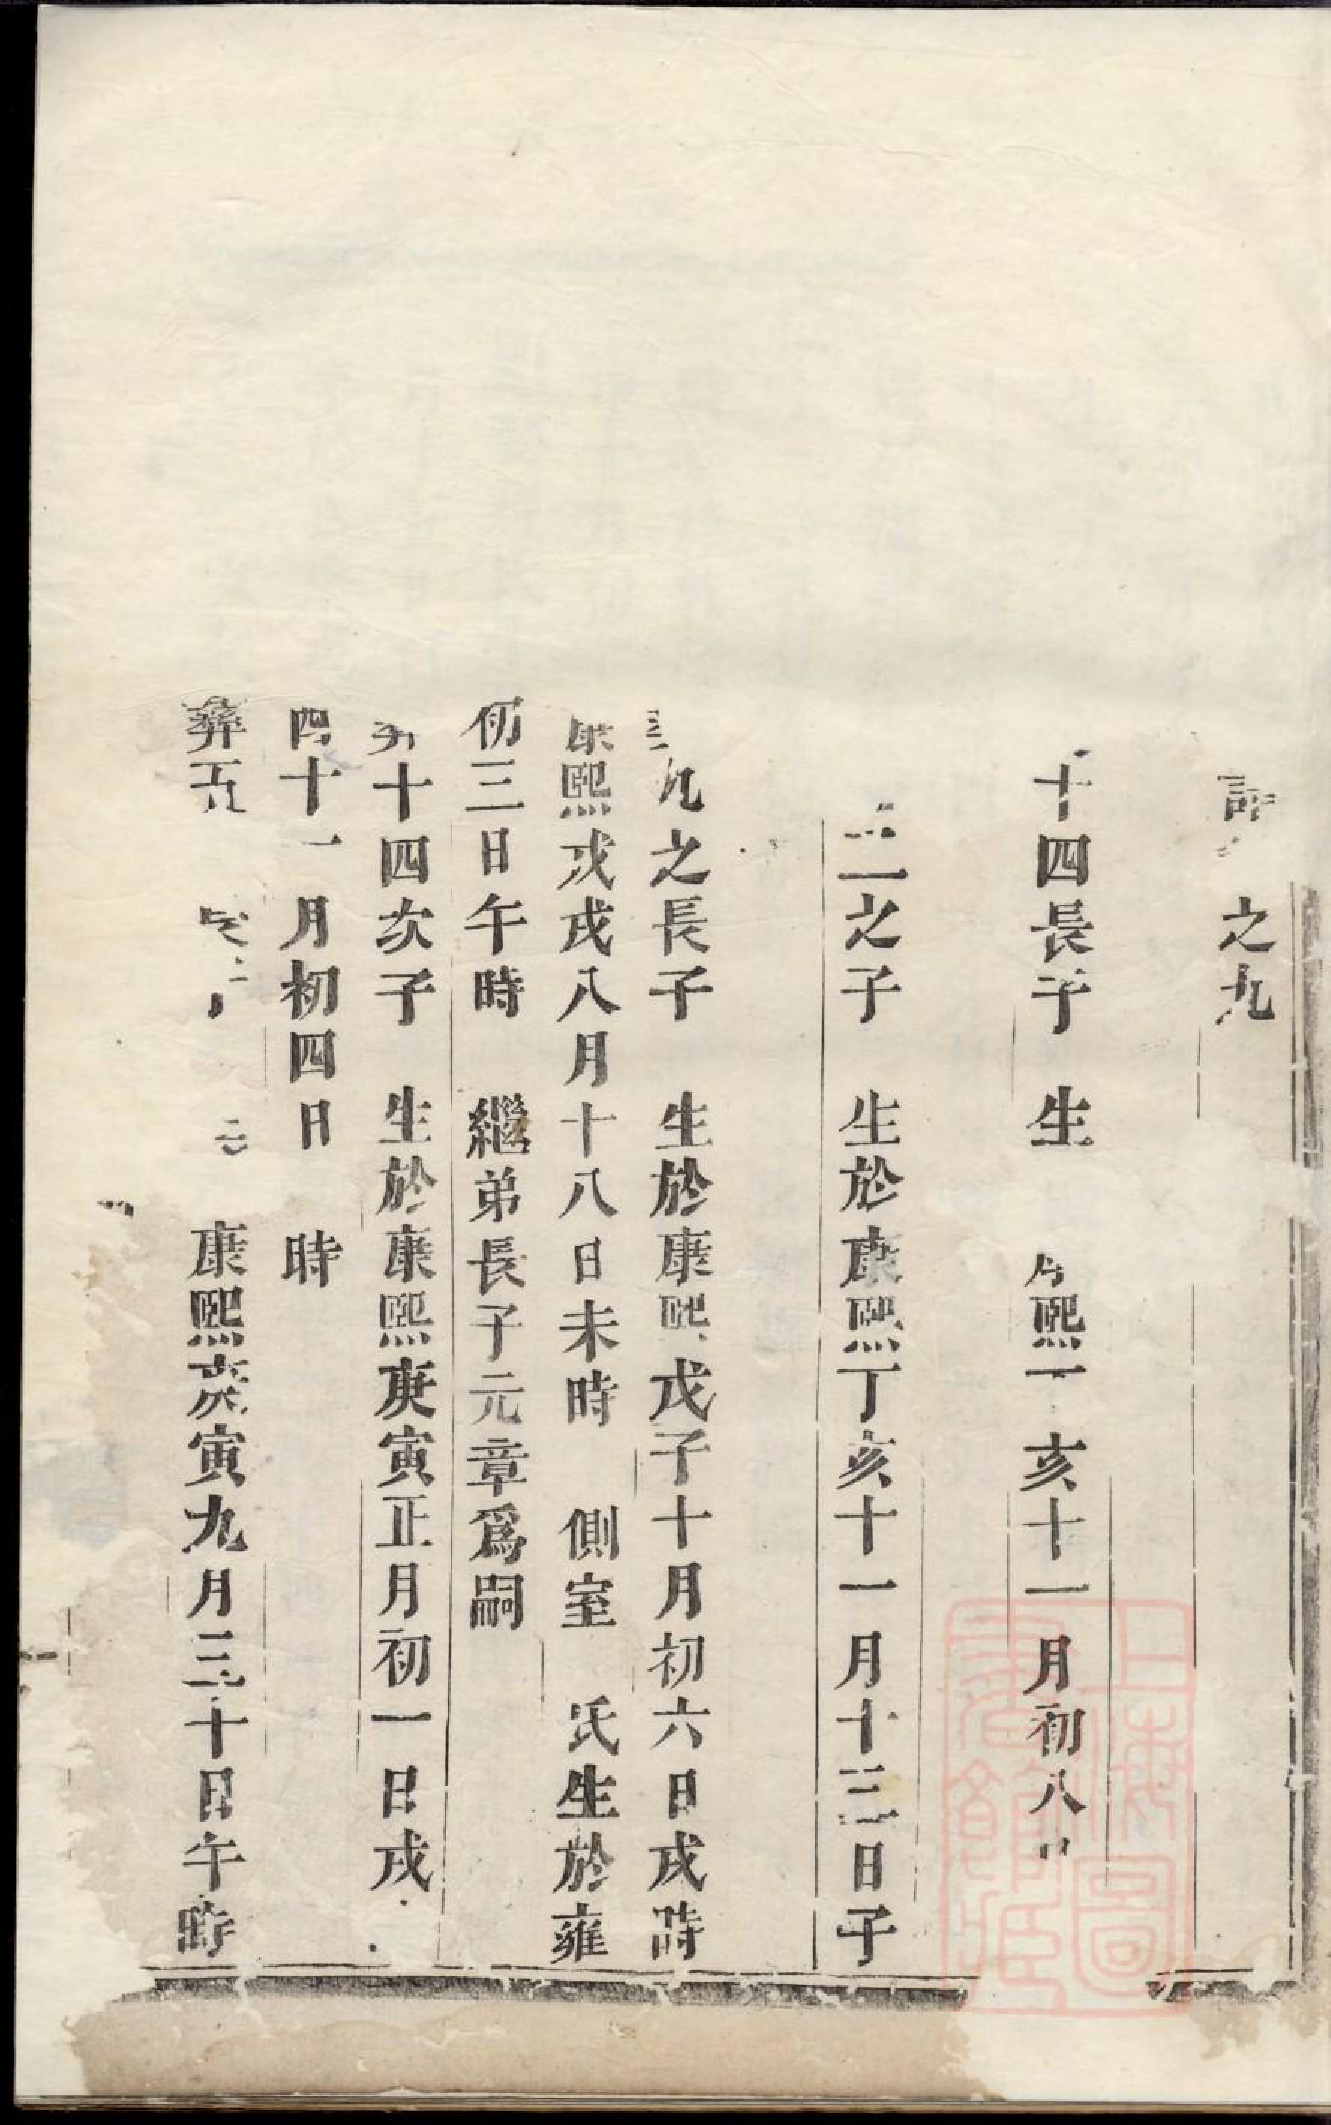 之九
十四長子 生 熙 亥十一月初八
二之子 生於康熙丁亥十一月十三日子
九之長子 生於康熙戊子十月初六日戌時
康熙戊戌八月十八日未時 側室 氏生於雍
初三日午時 繼弟長子元章爲嗣
十四次子 生於康熙庚寅正月初一日戌
四十一月初四日 時
彝五 康熙庚寅九月三十日午時
上海圖書館藏